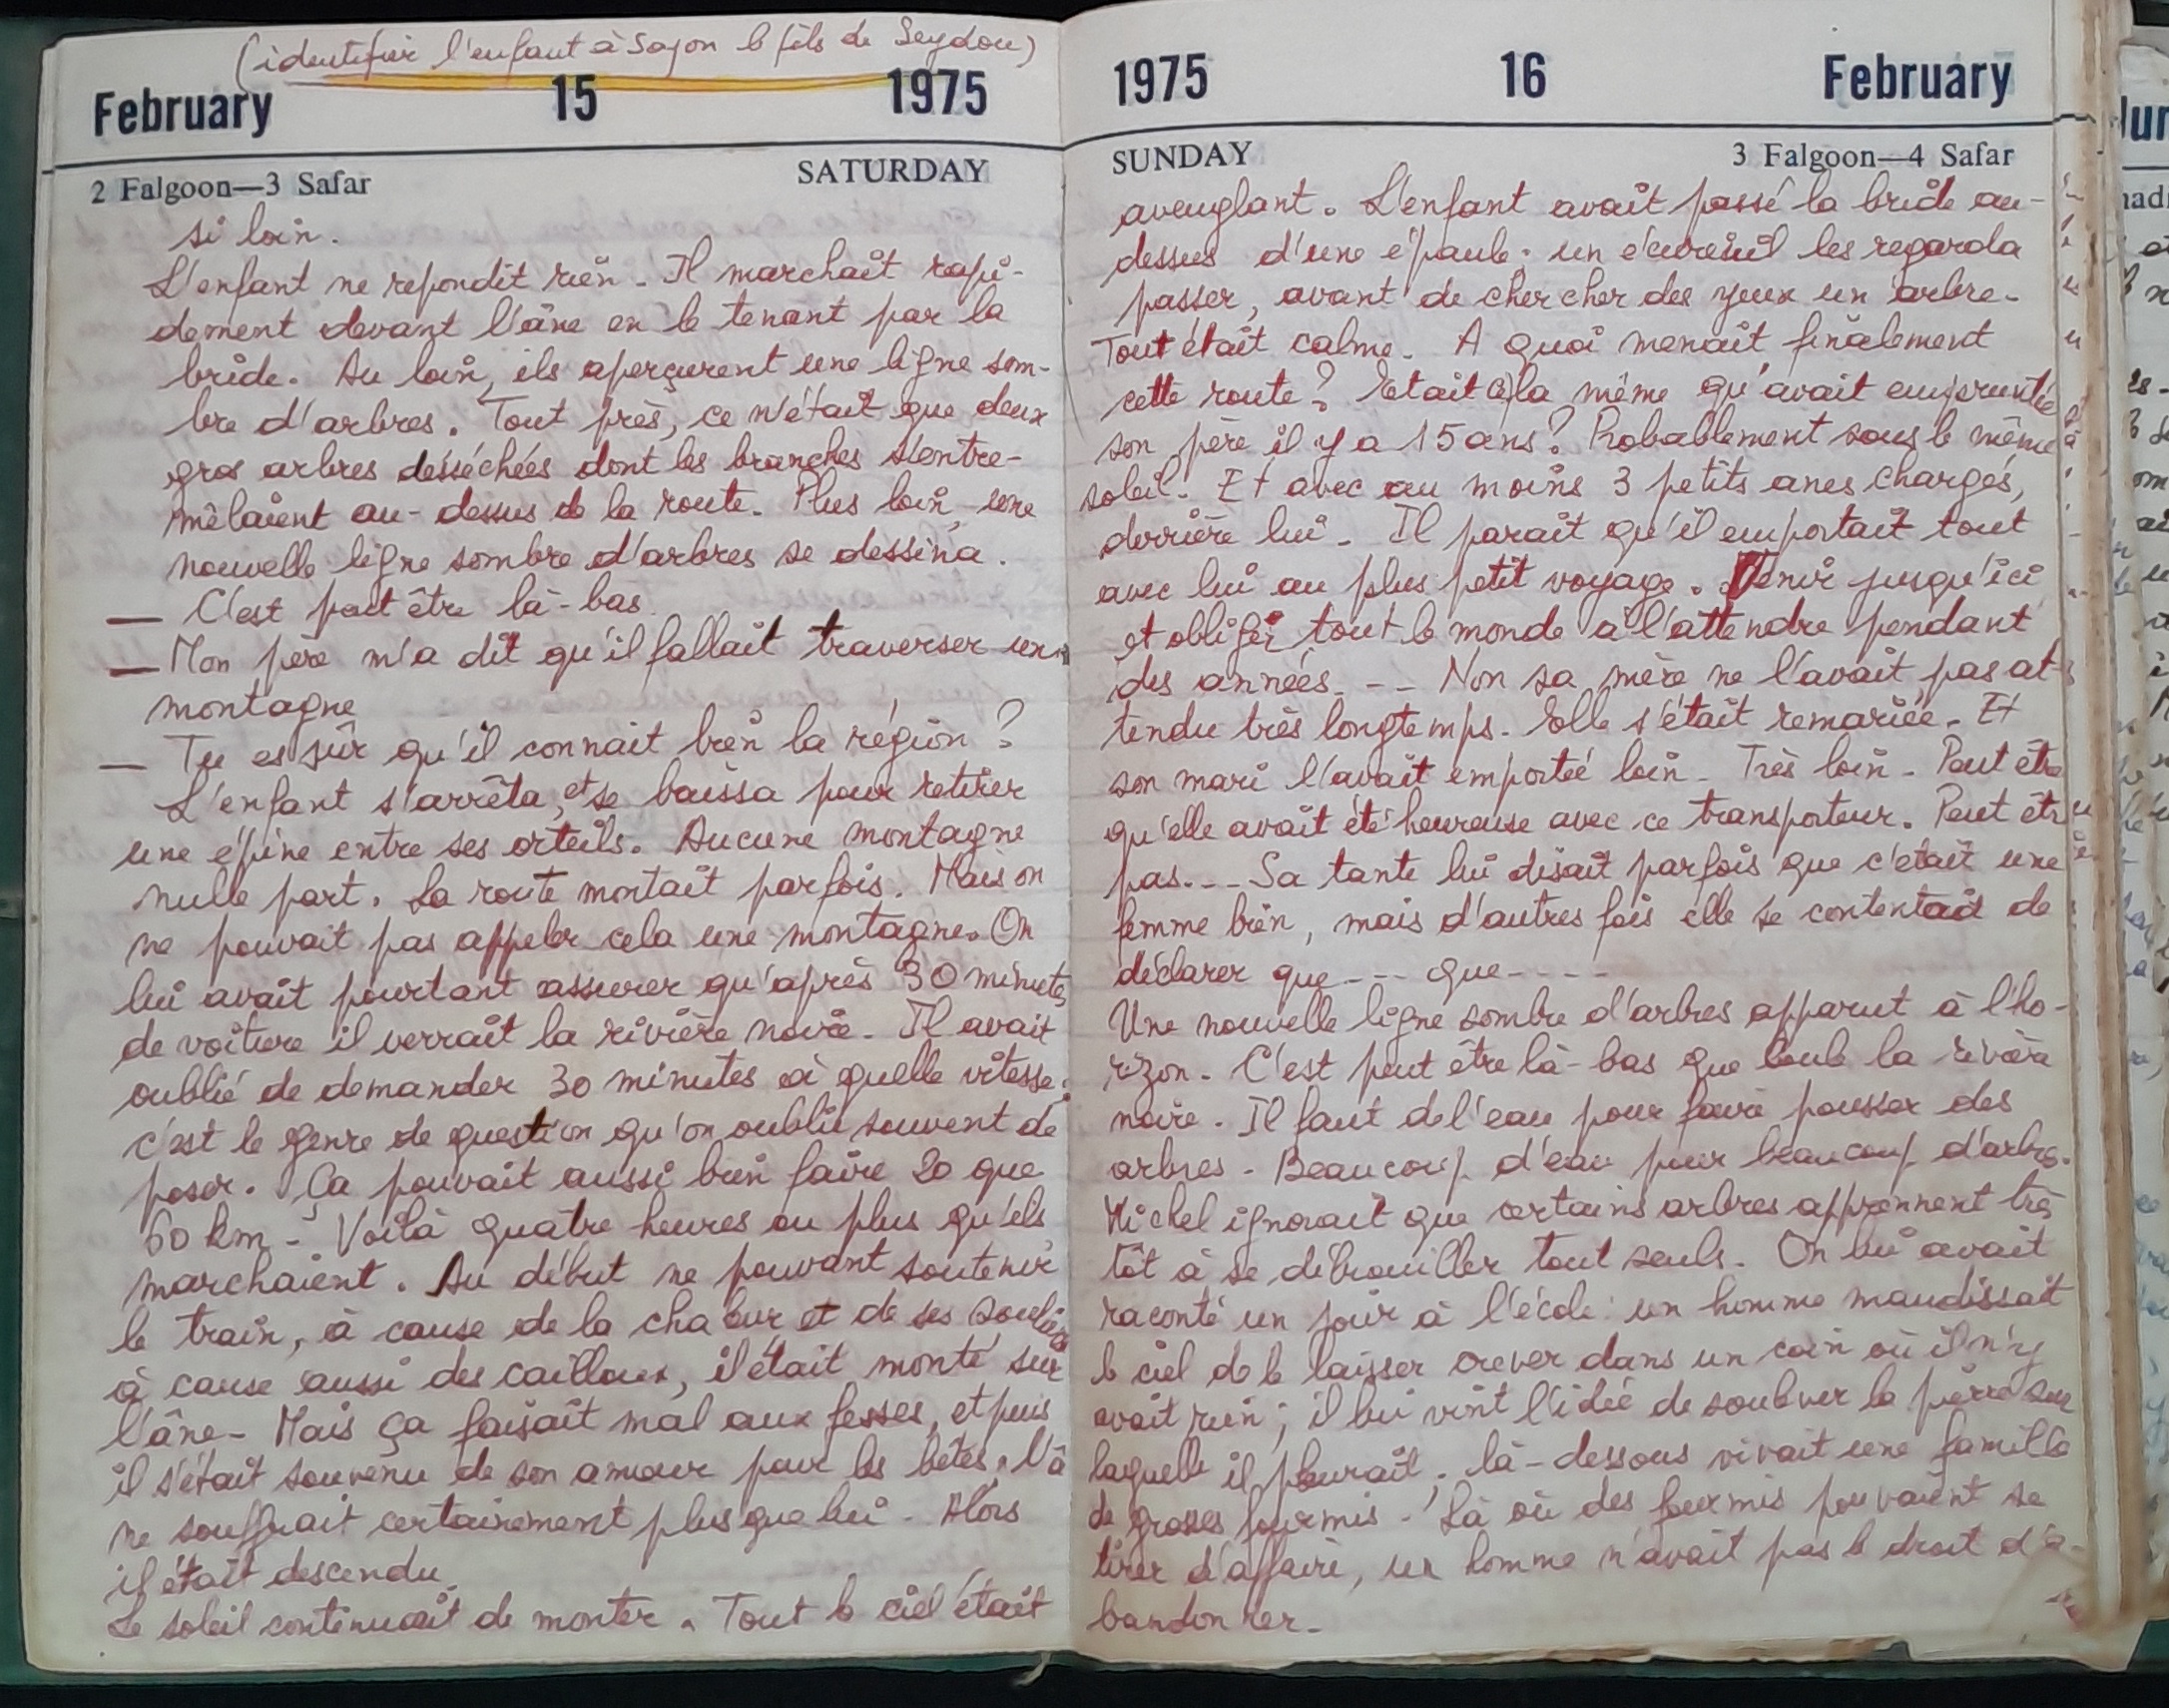 (identifier l'enfant à Sajon le fils de Seydou)
February 15 1975
2 Falgoon—3 Safar SATURDAY
si loin.
L'enfant ne repondit rien. Il marchait rapi-
dement devant l'âne en le tenant par la
bride. Au loin, ils aperçurent une ligne som-
bre d'arbres. Tout près, ce n'était que deux
gros arbres desséchées dont les branches s'entre-
mêlaient au-dessus de la route. Plus loin, une
nouvelle ligne sombre d'arbres se dessina.
— C'est peut être là-bas.
— Mon père m'a dit qu'il fallait traverser une
montagne
— Tu es sûr qu'il connait bien la région ?
L'enfant s'arrêta, et se baissa pour retirer
une épine entre ses orteils. Aucune montagne
nulle part. La route montait parfois. Mais on
ne pouvait pas appeler cela une montagne. On
lui avait pourtant assurer qu'après 30 minutes
de voiture il verrait la rivière noire. Il avait
oublié de demander 30 minutes à quelle vitesse ;
c'est le genre de question qu'on oublie souvent de
poser. Ça pouvait aussi bien faire 20 que
60 km - Voilà quatre heures ou plus qu'ils
marchaient. Au début ne pouvant soutenir
le train, à cause de la chaleur et de ses souliers
à cause aussi des cailloux, il était monté sur
l'âne - Mais ça faisait mal aux fesses, et puis
il s'était souvenu de son amour pour les bêtes. l'â
ne souffrait certainement plus que lui - Alors
il était descendu.
Le soleil continuait de monter. Tout le ciel était
1975 16 February
SUNDAY 3 Falgoon—4 Safar
aveuglant. L'enfant avait passé la bride au-
dessus d'une épaule. un écureuil les regarda
passer, avant de chercher des yeux un arbre.
Tout était calme. A quoi menait finalement
cette route ? Etait ce la même qu'avait empruntée
son père il y a 15 ans ? Probablement sous le même
soleil. Et avec au moins 3 petits anes chargés,
derrière lui - Il parait qu'il emportait tout
avec lui au plus petit voyage. Venir jusqu'ici
et obliger tout le monde à l'attendre pendant
des années. -- Non sa mère ne l'avait pas at-
tendu très longtemps. Elle s'était remariée. Et
son mari l'avait emporteé loin - Très loin - Peut être
qu'elle avait été heureuse avec ce transporteur. Peut être
pas. -- Sa tante lui disait parfois que c'etait une
femme bien, mais d'autres fois elle se contentait de
déclarer que --- que ----
Une nouvelle ligne sombre d'arbres apparut à l'ho-
rizon. C'est peut être là-bas que coule la rivière
noire. Il faut de l'eau pour faire pousser des
arbres - Beaucoup d'eau pour beaucoup d'arbres.
Michel ignorait que certains arbres apprennent très
tôt à se débrouiller tout seuls. On lui avait
raconté un jour à l'école : un homme maudissait
le ciel de le laisser crever dans un coin où il n'y
avait rien ; il lui vint l'idée de soulever la pierre sur
laquelle il pleurait ; là-dessous vivait une famille
de grosses fourmis - Là où des fourmis pouvaient se
tirer d'affaire, un homme n'avait pas le droit d'a-
bandonner.